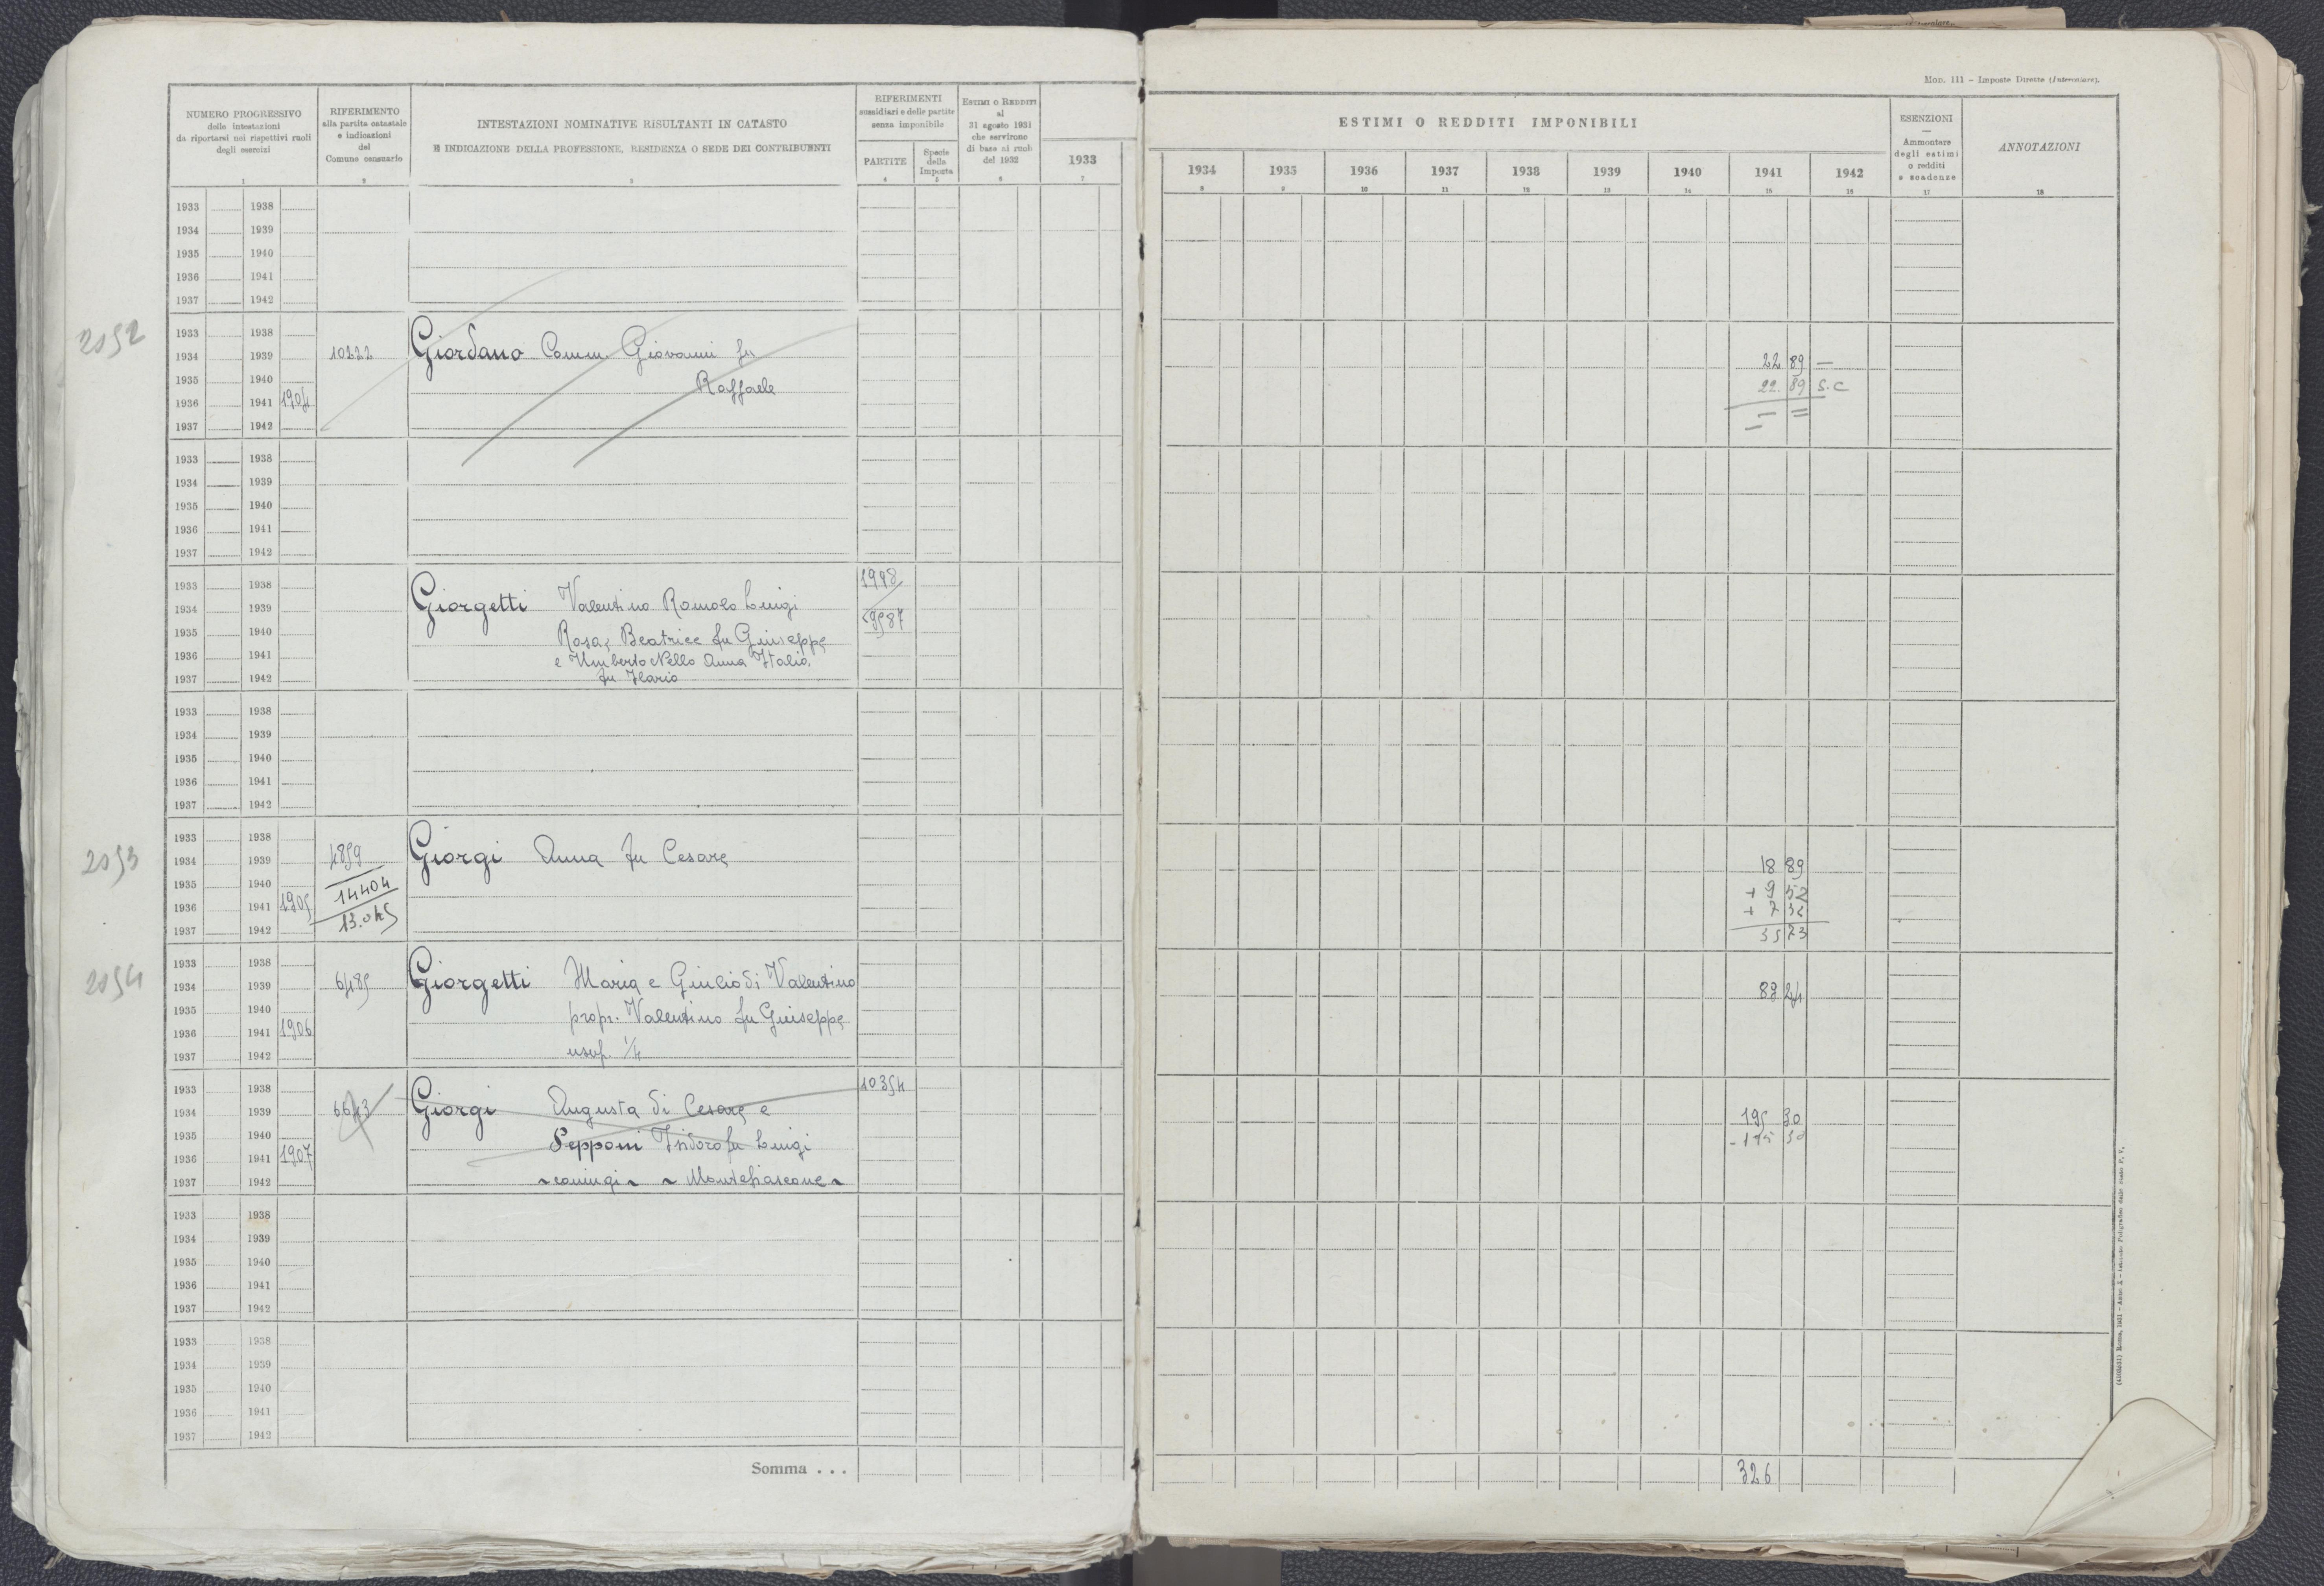 Mod. 111 - Imposte Dirette (Intercalare).
NUMERO PROGRESSIVO
delle intestazioni
da riportarsi nei rispettivi ruoli
degli esercizi
1
RIFERIMENTO
alla partita catastale
e indicazioni
del
Comune censuario
2
INTESTAZIONI NOMINATIVE RISULTANTI IN CATASTO
E INDICAZIONE DELLA PROFESSIONE, RESIDENZA O SEDE DEI CONTRIBUENTI
3
RIFERIMENTI
sussidiari e delle partite
senza imponibile
PARTITE
4
Specie
della
Imposta
5
ESTIMI O REDDITI
al
31 agosto 1931
che servirono
di base ai ruoli
del 1932
6
1933
7
ESTIMI O REDDITI IMPONIBILI
1934 1935 1936 1937 1938 1939 1940 1941 1942
8 9 10 11 12 13 14 15 16
ESENZIONI
—
Ammontare
degli estimi
o redditi
e scadenze
17
ANNOTAZIONI
18
1933 1938
1934 1939
1935 1940
1936 1941
1937 1942
2052
1933 1938
1934 1939 10222 Giordano Comm. Giovanni fu 22 89 —
1935 1940 Raffaele 22 89 S.C
1936 1941 1904 — =
1937 1942
1933 1938
1934 1939
1935 1940
1936 1941
1937 1942
1933 1938 1998
1934 1939 Giorgetti Valentino Romolo Luigi
1935 1940 Rosa, Beatrice fu Giuseppe
1936 1941 e Umberto Nello Anna Italia
1937 1942 fu Ilario
1933 1938
1934 1939
1935 1940
1936 1941
1937 1942
2053
1933 1938
1934 1939 4859 Giorgi Anna fu Cesare 18 89
1935 1940 14404 + 9 52
1936 1941 1905 + 7 32
1937 1942 35 73
2054
1933 1938
1934 1939 6485 Giorgetti Maria e Giulio di Valentino 89 24
1935 1940 propr. Valentino fu Giuseppe
1936 1941 1906
1937 1942 usuf. 1/4
1933 1938 10354
1934 1939 6643 Giorgi Augusta di Cesare e 195 30
1935 1940 Pepponi Isidoro fu Luigi - 195 30
1936 1941 1907
1937 1942 coniugi ~ Montefiascone ~
1933 1938
1934 1939
1935 1940
1936 1941
1937 1942
1933 1938
1934 1939
1935 1940
1936 1941
1937 1942
Somma . . . 326